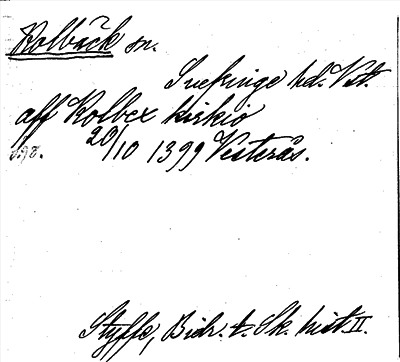 Kolbäck sn.
Snefringe hd. Vstm.
aff Kolbex kirkio
20/10 1399 Vesterås.
Styffe, Bidr. t. Sk. hist. II.